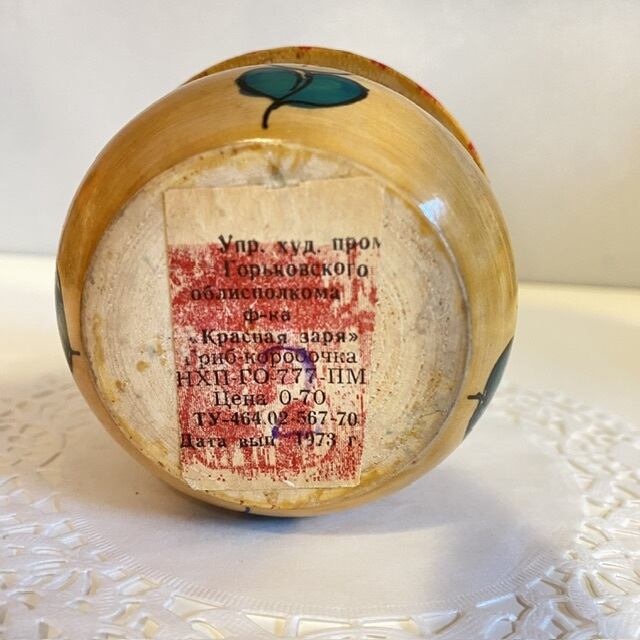 Упр. худ. пром
Горьковского
облисполкома
ф-ка
«Красная заря»
Гриб-коробочка
НХП-ГО 777-ПМ
Цена 0-70
ТУ-464.02-567-70
Дата вып. 1973 г.
2